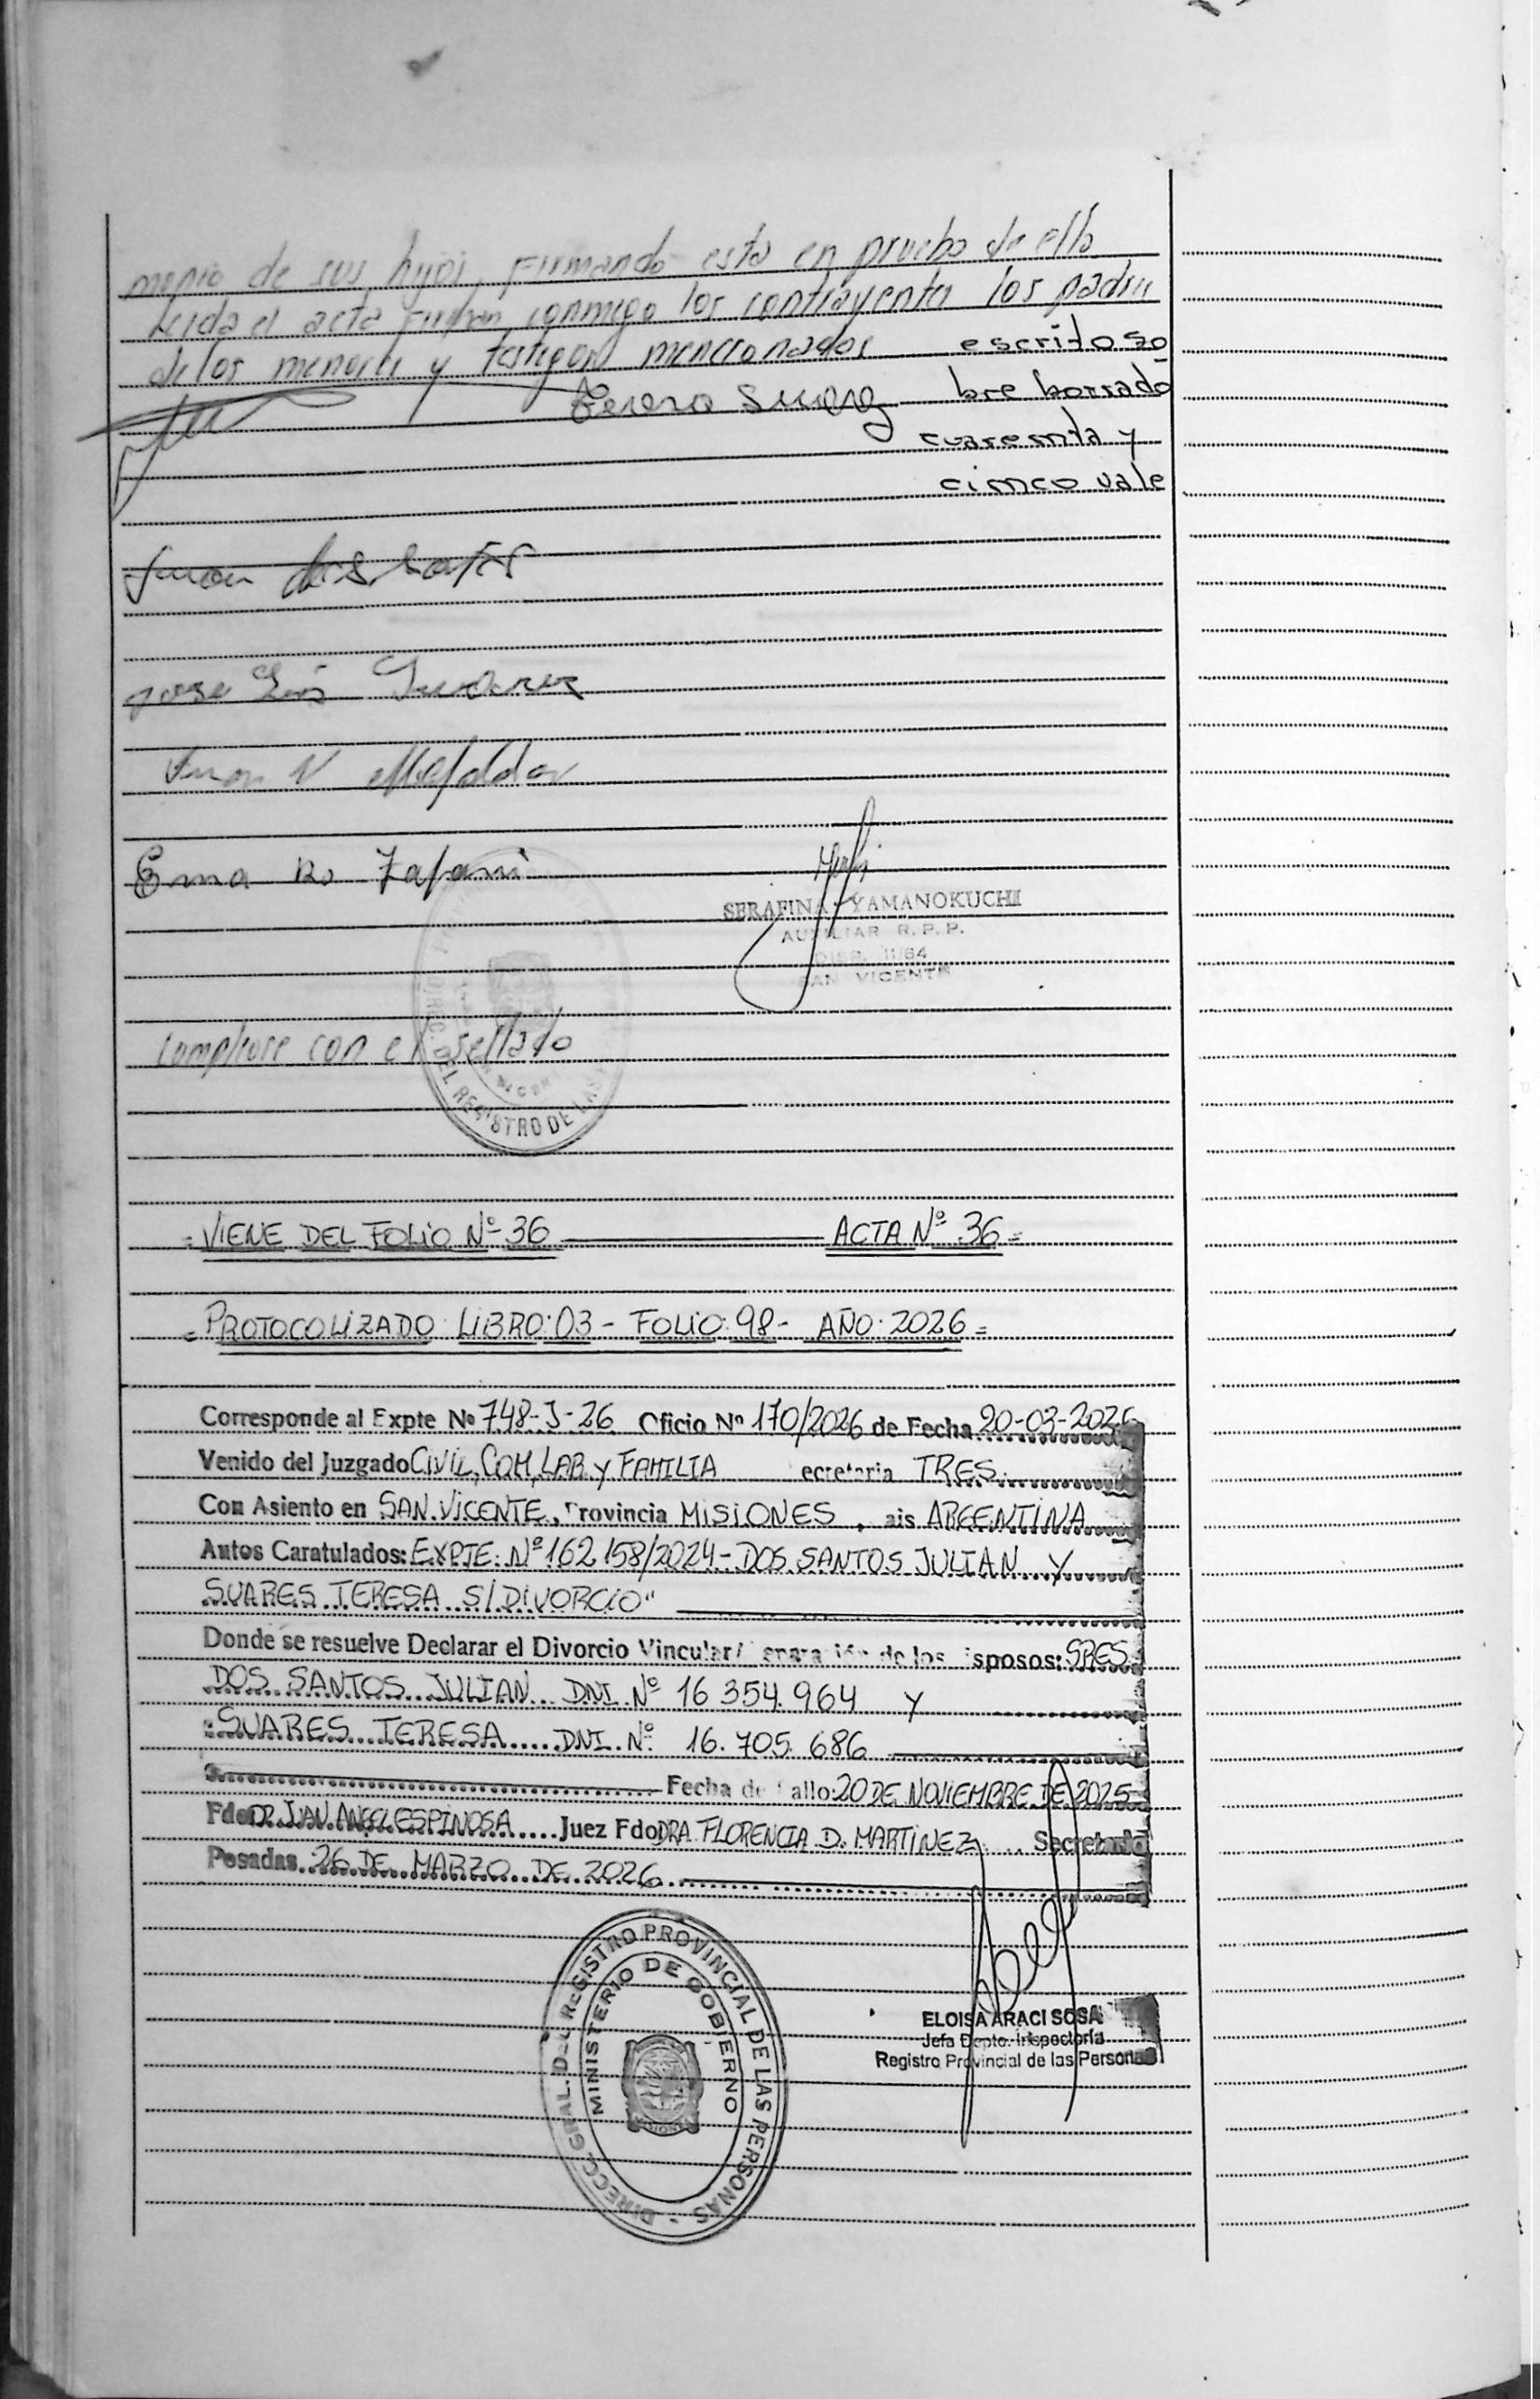 monio de sus hijos, firmando esta en prueba de ello
Leida el acta firman conmigo los contrayentes los padres
de los menores y testigos mencionados escrito so
bre borrado
Teresa Suarez
cuarenta y
cinco vale
Juan dos Santos
Jose Luis
Juan V
Ema
SERAFINA YAMANOKUCHI
AUXILIAR R.P.P.
DISP. 11/84
SAN VICENTE
Complease con el sellado
DIREC. DEL REGISTRO DE LAS
=VIENE DEL FOLIO Nº 36 ACTA Nº 36=
=PROTOCOLIZADO LIBRO: 03 - FOLIO: 98 - AÑO: 2026=
Corresponde al Expte Nº 748-J-26 Oficio Nº 170/2026 de Fecha 20-03-2026
Venido del Juzgado CIVIL, COM, LAB. y FAMILIA ecretaria TRES
Con Asiento en SAN VICENTE, Provincia MISIONES, ais ARGENTINA
Autos Caratulados: EXPTE. Nº 162158/2024 - DOS SANTOS JULIAN Y
SUARES TERESA S/DIVORCIO"
Donde se resuelve Declarar el Divorcio Vincular/ eparación de los sposos: SRES
DOS SANTOS JULIAN DNI Nº 16 354.964 Y
SUARES TERESA DNI. Nº 16.705.686
Fecha de Fallo: 20 DE NOVIEMBRE DE 2025
Fdo DR. JUAN ANGEL ESPINOSA Juez Fdo DRA FLORENCIA D. MARTINEZ Secretario
Posadas 26 DE MARZO DE 2026
DIRECC. GRAL. DEL REGISTRO PROVINCIAL DE LAS PERSONAS -
MINISTERIO DE GOBIERNO
ELOISA ARACI SOSA
Jefa Depto. Inspectoría
Registro Provincial de las Personas